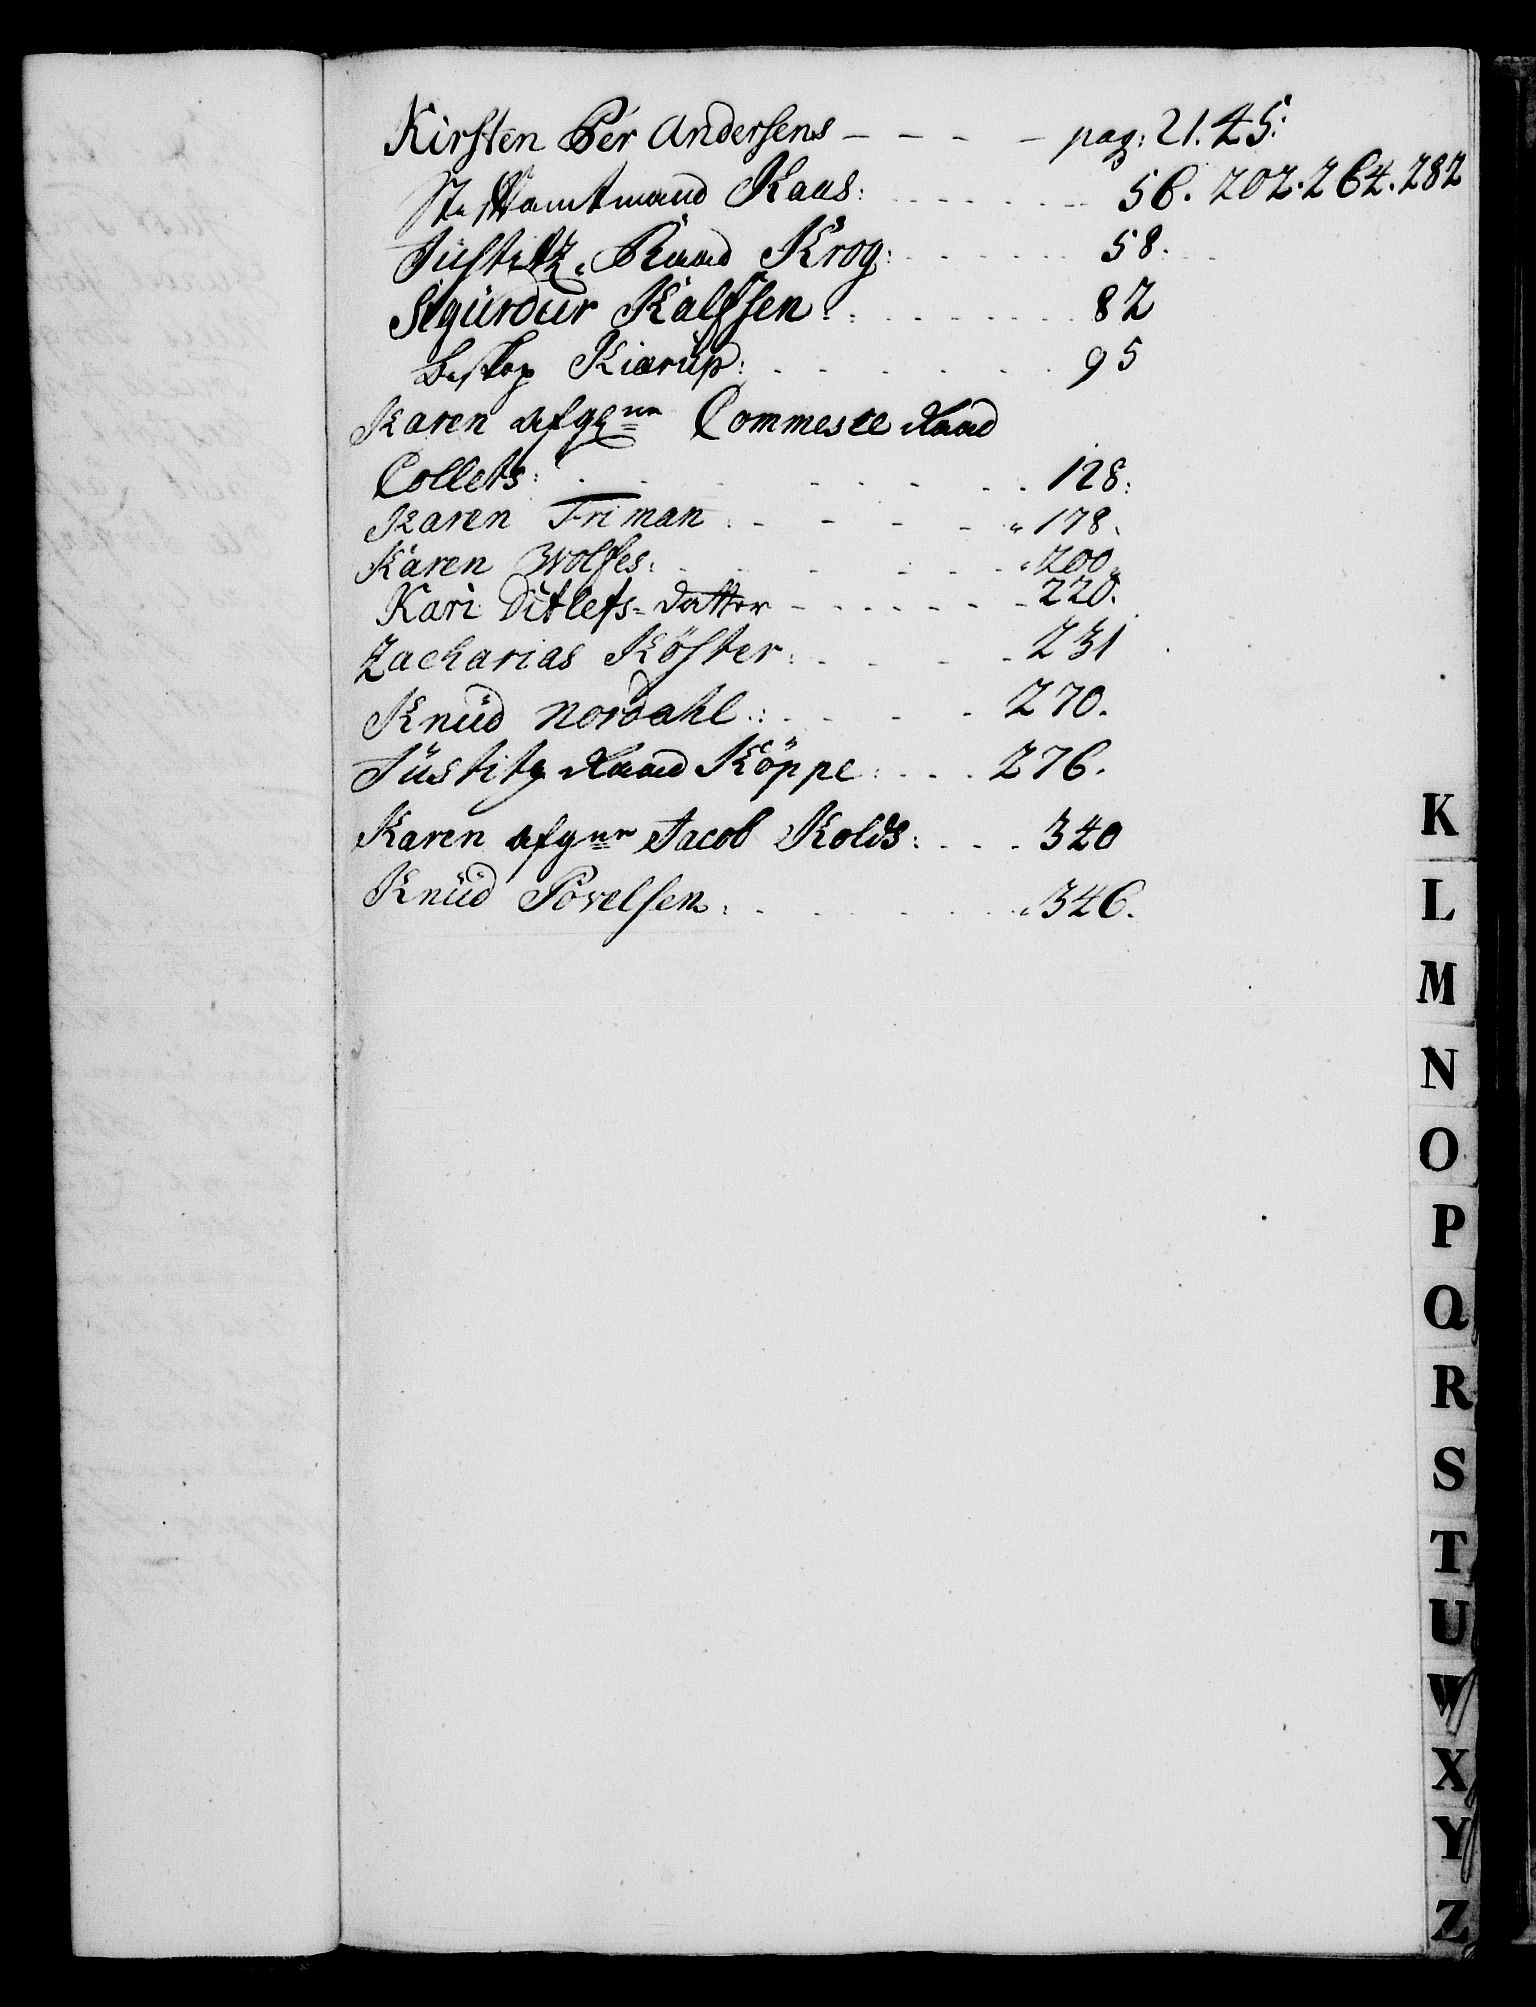 Kirsten Per Andersens - - - - pag: 21. 45:
Stiftamtmand Kaas: . . . . . . 56. 202. 264. 282
Justitz Raad Krog: . . . . . . 58.
Sigurdur Kalfsen: . . . . . . 82
Biskop Kiærup: . . . . . . 95
Karen afgne Commerce Raad
Collets: . . . . . . 128:
Karen Friman: - - - - 178.
Karen Wolfes: . . . . . . 200.
Kari Ditlefs-datter - - - - - 220.
Zacharias Köster: . . . . 231
Knud Nordahl: . . . . 270.
Justitz Raad Köppe: . . . . 276.
Karen afgne Jacob Kolds: . . . 340
Knud Povelsen: . . . . . . 346.
K
L
M
N
O
P
Q
R
S
T
U
W
X
Y
Z